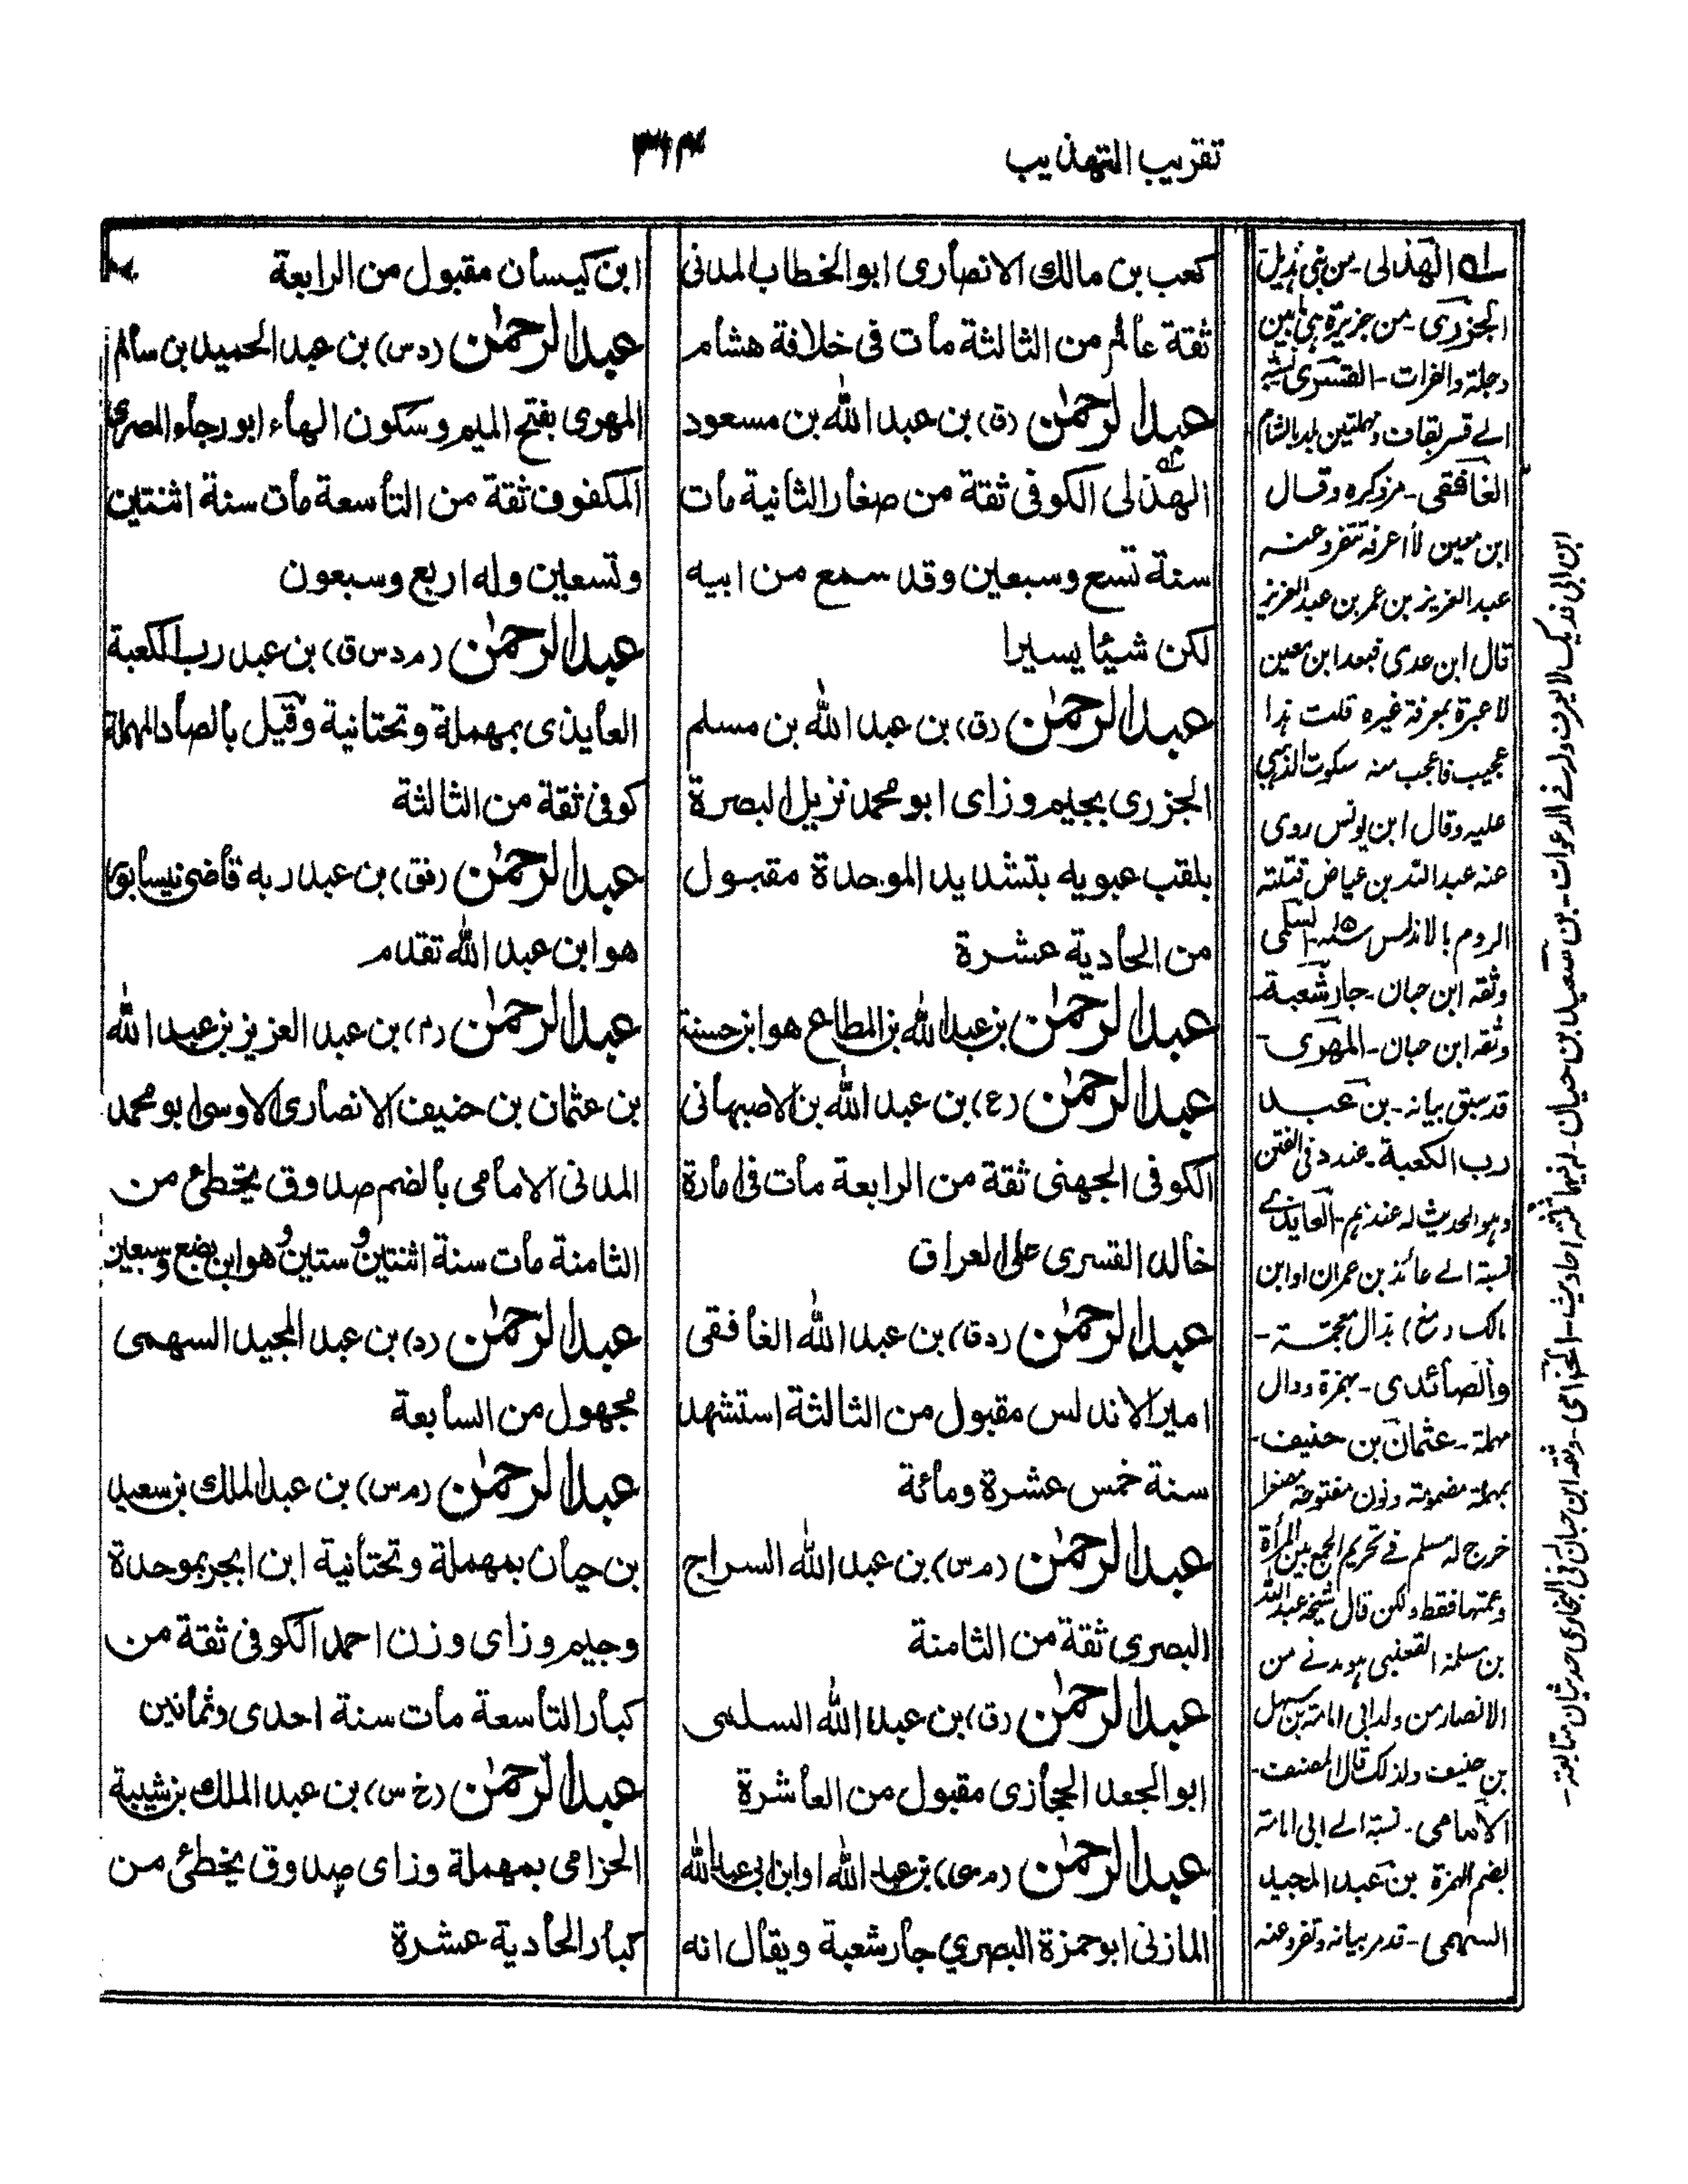 تقريب التهذيب
٣١٣
كعب بن مالك الانصارى ابو الخطاب المدنى
ثقة عالم من الثالثة مات فى خلافة هشام
عبد الرحمٰن (ق) بن عبد الله بن مسعود
الهذلى الكوفى ثقة من صغار الثانية مات
سنة تسع وسبعين وقد سمع من ابيه
لكن شيئا يسيرا
عبد الرحمٰن (ق) بن عبد الله بن مسلم
الجزرى بجيم وزاى ابو محمد نزيل البصرة
يلقب عبويه بتشديد الموحدة مقبول
من الحادية عشرة
عبد الرحمٰن بن عبد الله بن المطاع هو ابن حسنة
عبد الرحمٰن (ع) بن عبد الله بن الاصبهانى
الكوفى الجهنى ثقة من الرابعة مات فى امارة
خالد القسرى على العراق
عبد الرحمٰن (دق) بن عبد الله الغافقى
امير الاندلس مقبول من الثالثة استشهد
سنة خمس عشرة ومائة
عبد الرحمٰن (مس) بن عبد الله السراج
البصرى ثقة من الثامنة
عبد الرحمٰن (ق) بن عبد الله السلمى
ابو الجعد الحجازى مقبول من العاشرة
عبد الرحمٰن بن عبد الله او ابن ابى عبد الله
المازنى ابو حمزة البصرى جار شعبة ويقال انه
ابن كيسان مقبول من الرابعة
عبد الرحمٰن (دس) بن عبد الحميد بن سالم
المهرى بفتح الميم وسكون الهاء ابو رجاء المصرى
المكفوف ثقة من التاسعة مات سنة اثنتين
وتسعين وله اربع وسبعون
عبد الرحمٰن (م د س ق) بن عبد رب الكعبة
العايذى بمهملة وتحتانية وقيل بالصاد المهملة
كوفى ثقة من الثالثة
عبد الرحمٰن (فق) بن عبد ربه قاضى نيسابور
هو ابن عبد الله تقدم
عبد الرحمٰن (م) بن عبد العزيز بن عبد الله
بن عثمان بن حنيف الانصارى الاوسى ابو محمد
المدنى الامامى بالضم صدوق يخطئ من
الثامنة مات سنة اثنتين و ستين و هو ابن بضع و سبعين
عبد الرحمٰن (د) بن عبد المجيد السهمى
مجهول من السابعة
عبد الرحمٰن (م س) بن عبد الملك بن سعيد
بن حيان بمهملة وتحتانية ابن ابجر بموحدة
وجيم وزاى وزن احمد الكوفى ثقة من
كبار التاسعة مات سنة احدى وثمانين
عبد الرحمٰن (خ س) بن عبد الملك بن شيبة
الحزامى بمهملة وزاى صدوق يخطئ من
كبار الحادية عشرة
الهذلى - من بنى هذيل
الجزرى - من جزيرة هى بين
دجلة والفرات - القسرى نسبة
الے قسر بقاف ومهملتين بلد بالشام
الغافقى - مر ذكره وقال
ابن معين لا اعرفه تفرد عنه
عبد العزيز بن عمر بن عبد العزيز
قال ابن عدى فبعد ابن معين
لا عبرة بمعرفة غيره قلت هذا
عجيب فاعجب منه سكوت الذهبى
عليه وقال ابن يونس روى
عنه عبد الله بن عياض قتلته
الروم بالاندلس السلمى
وثقه ابن حبان - جار شعبة -
وثقه ابن حبان - المهرى -
قد سبق بيانه - بن عبد
رب الكعبة - عنده فى الفتن
وهو الحديث له عندهم - العايذى
نسبة الے عائذ بن عمران او ابن
مالك بذال معجمة -
والصائدى - بهمزة ودال
مهملة - عثمان بن حنيف -
بمهملة مضمومة ونون مفتوحة مصغرا
خرج له مسلم فى تحريم الجمع بين المرأة
وعمتها فقط ولكن قال شيخه عبد الله
بن مسلمة القعنبى هو مدنى من
الانصار من ولد ابى امامة بن سهل
بن حنيف ولذلك قال المصنف -
الامامى - نسبة الے ابى امامة
بضم الهمزة بن عبد المجيد
السهمى - قد مر بيانه وتفرد عنه
ابن ابى فديك لا يعرف وله فى الدعوات - بن سعيد بن حيان - له فيهما ثلثة احاديث - الحزامى - وثقه ابن حبان له فى البخارى حديثان متابعة -